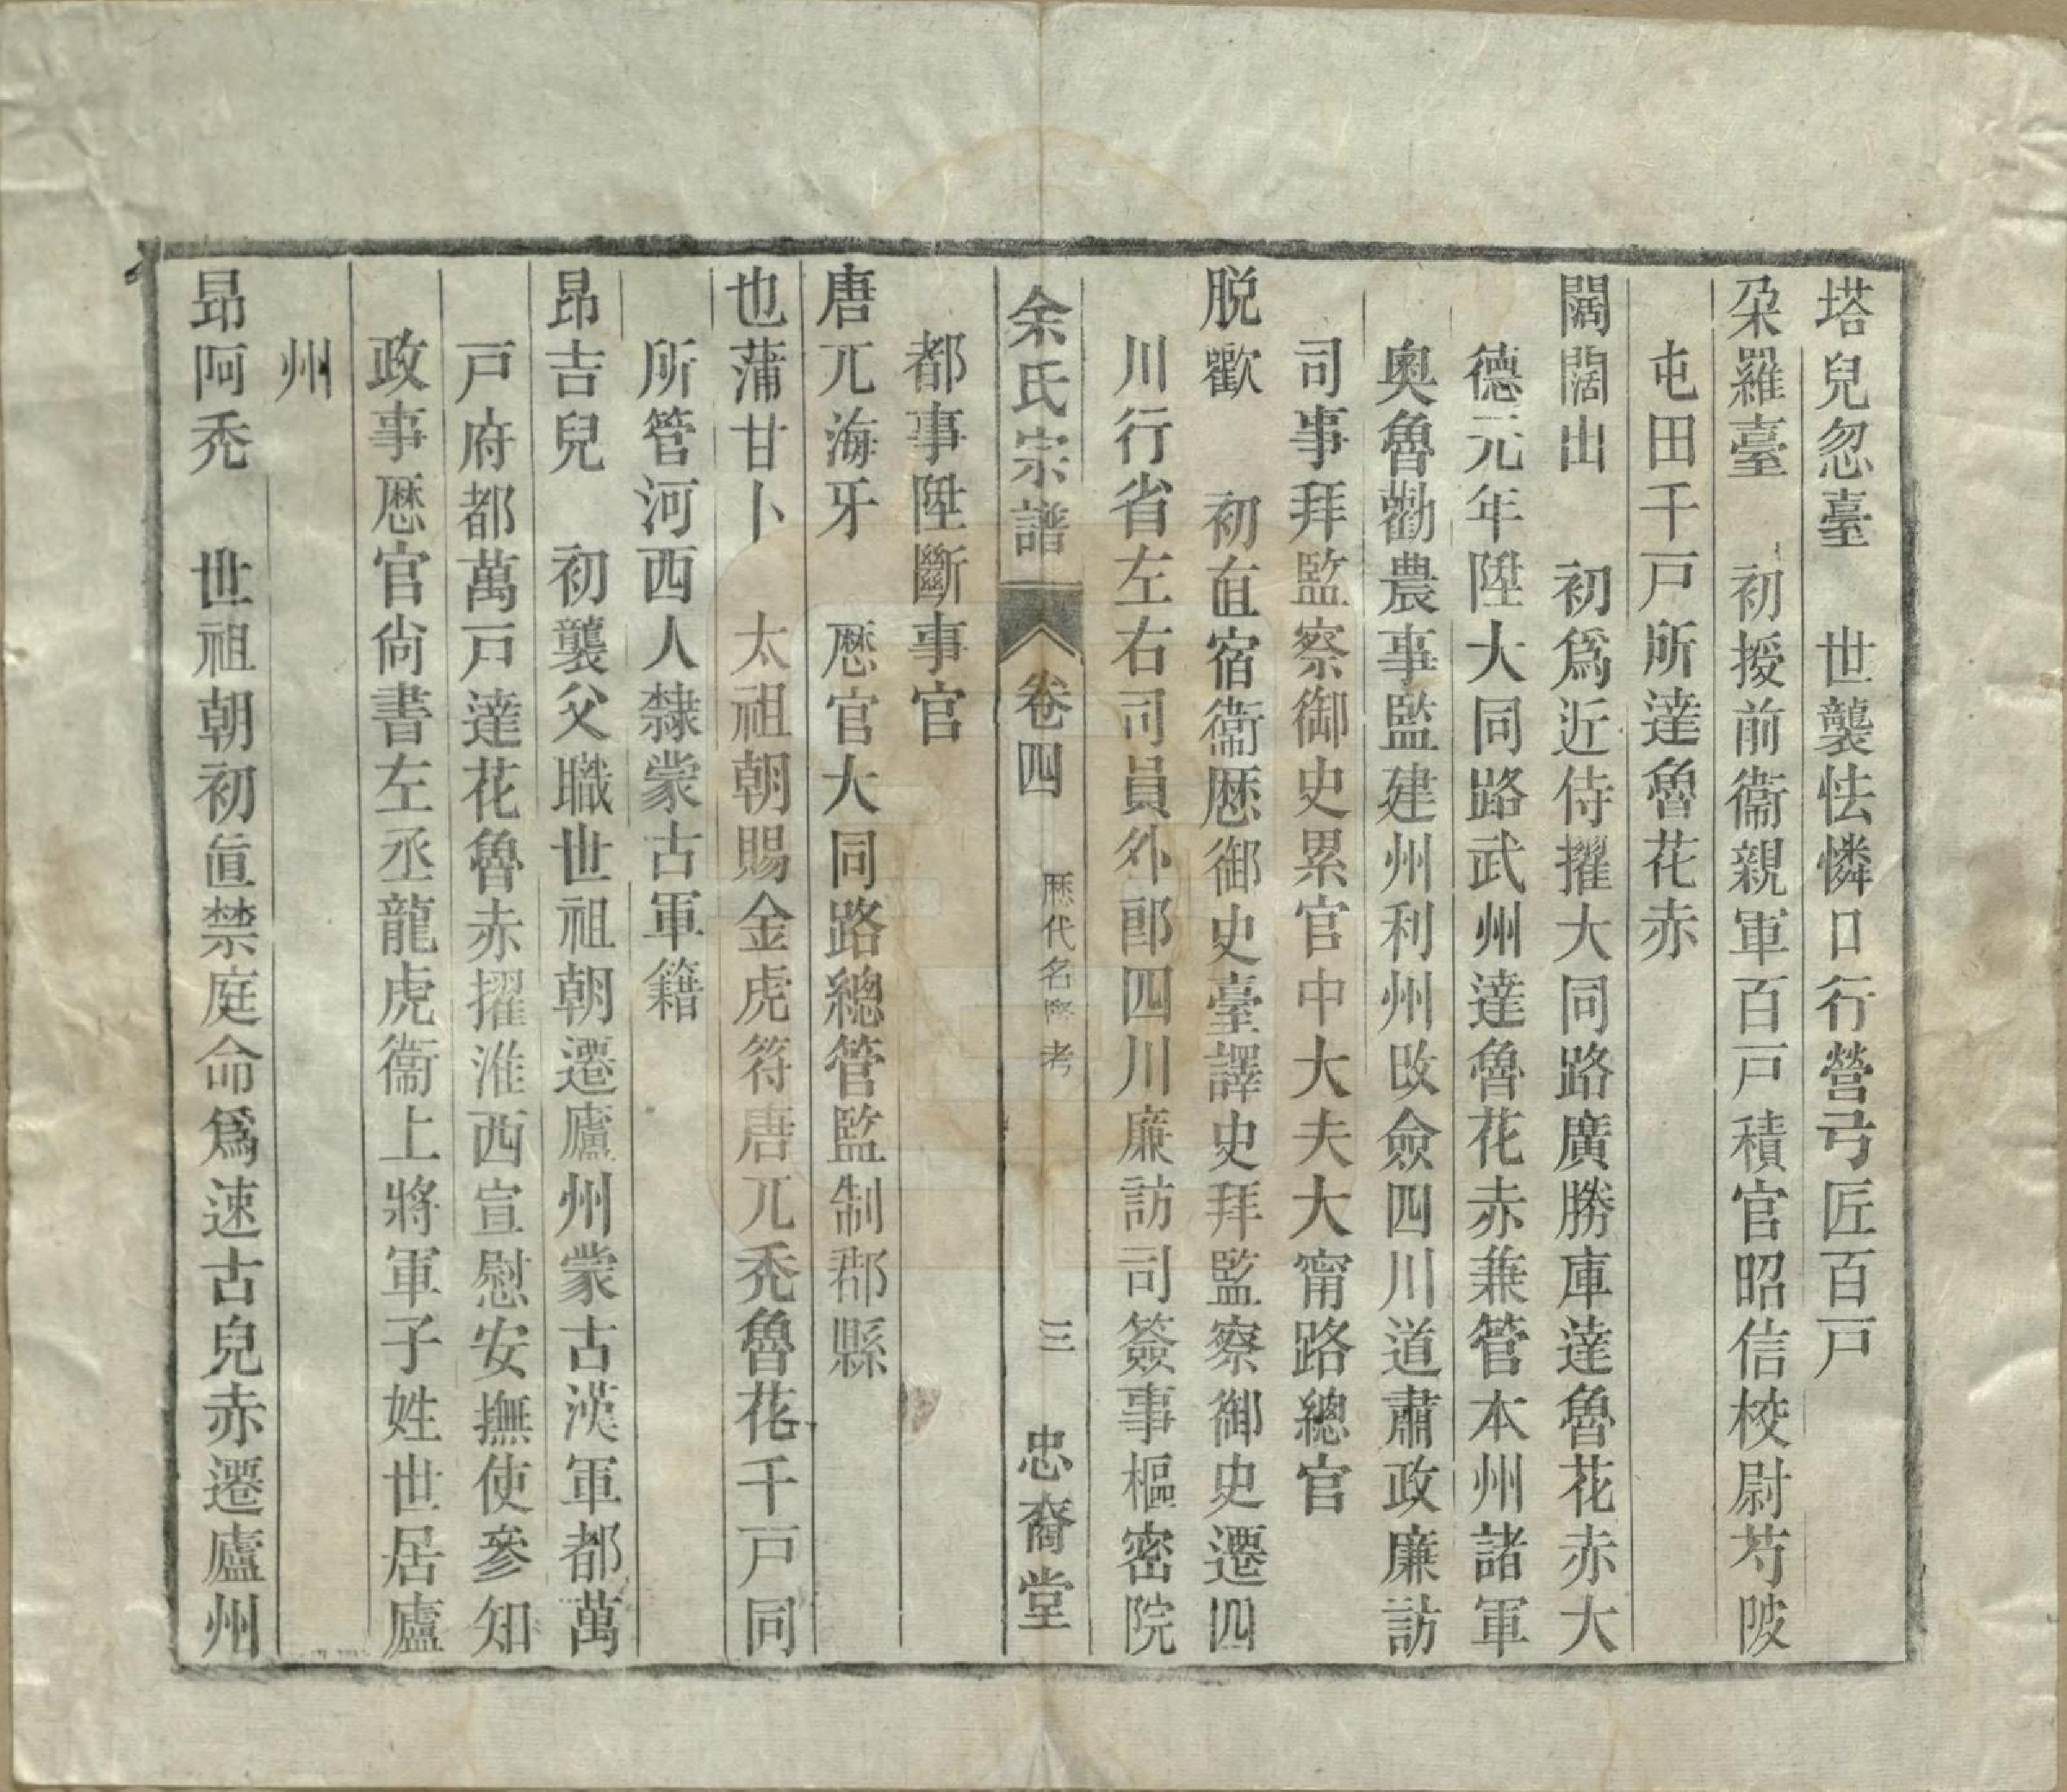 塔兒忽臺　世襲怯憐口行營弓匠百戸
朶羅臺　初授前衞親軍百戸積官昭信校尉芍陂
屯田千戸所達魯花赤
闊闊出　初爲近侍擢大同路廣勝庫達魯花赤大
德元年陞大同路武州達魯花赤兼管本州諸軍
奧魯勸農事監建州利州改僉四川道肅政廉訪
司事拜監察御史累官中大夫大甯路總官
脱歡　初直宿衞歷御史臺譯史拜監察御史遷四
川行省左右司員外郎四川廉訪司簽事樞密院
都事陞斷事官
余氏宗譜　卷四　歷代名賢考　三　忠裔堂
唐兀海牙　歷官大同路總管監制郡縣
也蒲甘卜　太祖朝賜金虎符唐兀禿魯花千戸同
所管河西人隸蒙古軍籍
昂吉兒　初襲父職世祖朝遷廬州蒙古漢軍都萬
戸府都萬戸達花魯赤擢淮西宣慰安撫使參知
政事歷官尙書左丞龍虎衞上將軍子姓世居廬
州
昂阿禿　世祖朝初直禁庭命爲速古兒赤遷廬州